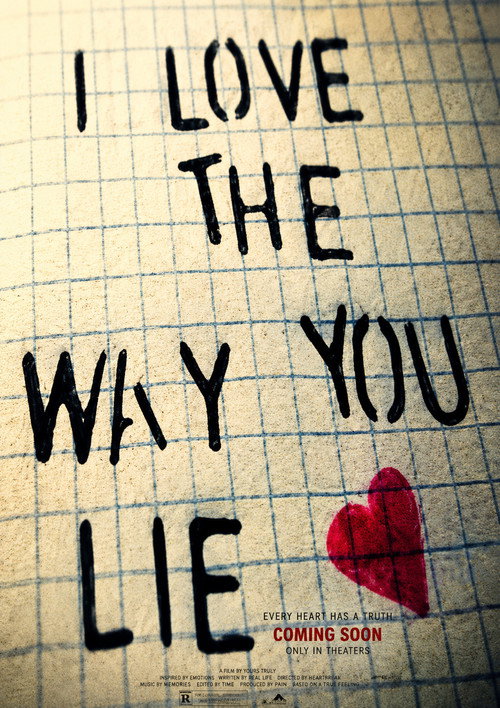 I LOVE
THE
WAY YOU
LIE
EVERY HEART HAS A TRUTH.
COMING SOON
ONLY IN THEATERS
A FILM BY YOURS TRULY
INSPIRED BY EMOTIONS WRITTEN BY REAL LIFE DIRECTED BY HEARTBREAK
MUSIC BY MEMORIES EDITED BY TIME PRODUCED BY PAIN BASED ON A TRUE FEELING
R